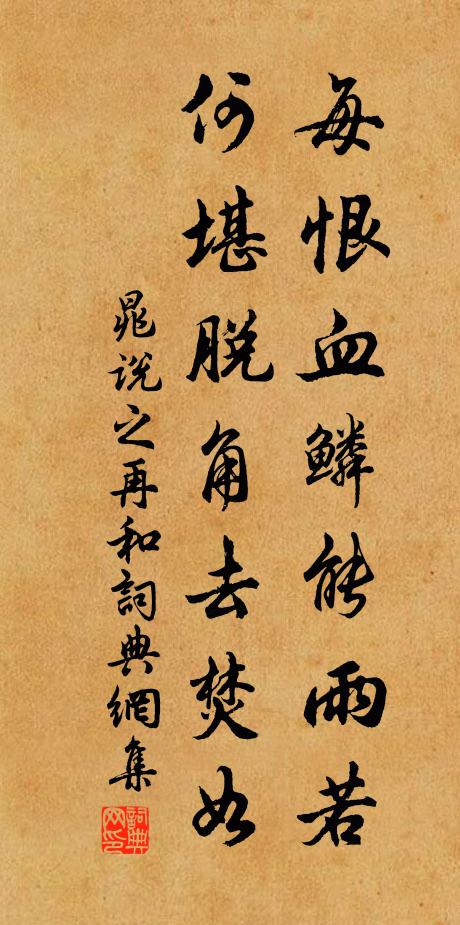 每恨血鱗能雨若
何堪脱角去焚如
晁説之再和詞典網集
詞典網印